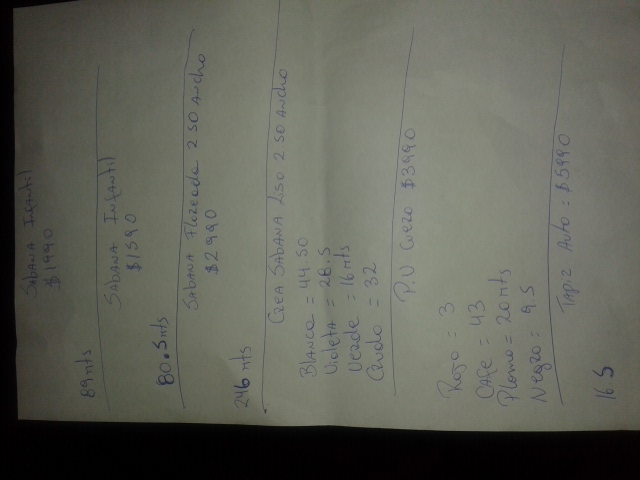 Sabana Infantil
$1990
89 mts
Sabana Infantil
$1590
80.5 mts
Sabana Floreada 2.50 Ancho
$2990
246 mts
Crea Sabana Liso 2.50 Ancho
Blanco = 44.50
Violeta = 28.5
Verde = 16 mts
Crudo = 32
P.U Cuero $3990
Rojo = 3
Cafe = 43
Plomo = 20 mts
Negro = 9 5
Tapiz Auto = $5990
16.5